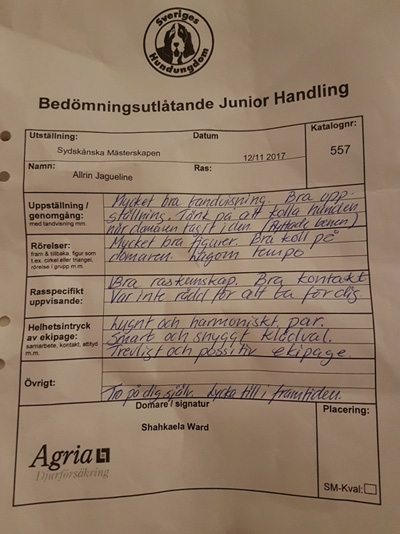 Sveriges
Hundungdom
Bedömningsutlåtande Junior Handling
Utställning:
Datum
Katalognr:
Sydskånska Mästerskapen
12/11 2017
557
Namn:
Ras:
Allrin Jagueline
Uppställning /
genomgång:
med tandvisning mm.
Mycket bra tandvisning. Bra upp-
ställning. Tänk på att kolla hunden
när domaren tagit i den (flyttade benen)
Rörelser:
fram & tillbaka, figur som
t.ex. cirkel eller triangel,
rörelse i grupp m.m.
Mycket bra figurer. Bra koll på
domaren. Lagom tempo
Rasspecifikt
uppvisande:
Bra raskunskap. Bra kontakt
Var inte rädd för att ta för dig
Helhetsintryck
av ekipage:
samarbete, kontakt, attityd
m.m.
Lugnt och harmoniskt par.
Smart och snyggt klädval.
Trevligt och possitiv ekipage.
Övrigt:
Tro på dig själv. Lycka till i framtiden.
Domare / signatur
Placering:
Shahkaela Ward
Agria
Djurförsäkring
SM-Kval: